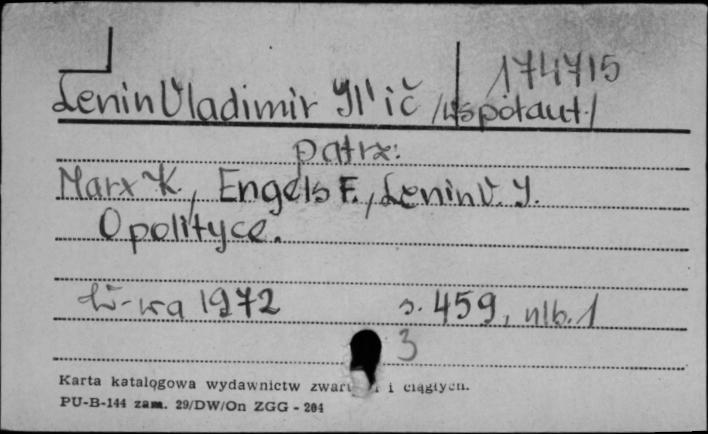 174715
Lenin Vladimir Il'ič /współaut./
patrz:
Marx K., Engels F., Lenin V. I.
O polityce.
W-wa 1972 s. 459, nlb. 1
3
Karta katalogowa wydawnictw i ciągłych.
PU-B-144 zam. 29/DW/On ZGG - 204